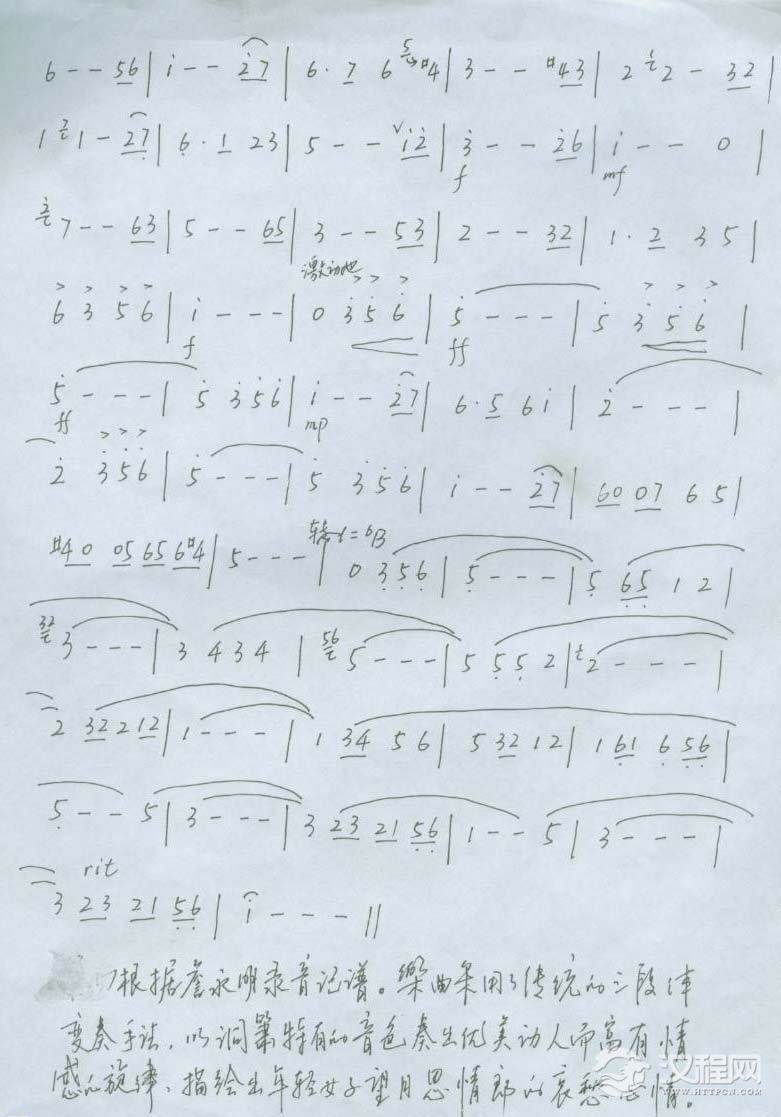 6 - - 5 6 | i - - 2 7 | 6 · 7 6 5 #4 | 3 - - #4 3 | 2 i 2 - 3 2 |
1 2 1 - 2 7 | 6 · 1 2 3 | 5 - - i 2 | 3 - - 2 6 | i - - 0 |
f mf
7 - - 6 3 | 5 - - 6 5 | 3 - - 5 3 | 2 - - 3 2 | 1 · 2 3 5 |
激动地
6 3 5 6 | i - - - | 0 3 5 6 | 5 - - - | 5 3 5 6 |
f ff
5 - - - | 5 3 5 6 | i - - 2 7 | 6 · 5 6 i | 2 - - - |
ff mp
2 3 5 6 | 5 - - - | 5 3 5 6 | i - - 2 7 | 6 0 0 7 6 5 |
转1=bB
#4 0 0 5 6 5 6 #4 | 5 - - - | 0 3 5 6 | 5 - - - | 5 6 5 1 2 |
32 3 - - - | 3 4 3 4 | 56 5 - - - | 5 5 5 2 | i 2 - - - |
2 3 2 2 1 2 | 1 - - - | 1 3 4 5 6 | 5 3 2 1 2 | 1 6 1 6 5 6 |
5 - - 5 | 3 - - - | 3 2 3 2 1 5 6 | 1 - - 5 | 3 - - - |
rit
3 2 3 2 1 5 6 | i - - - ||
根据詹永明录音记谱。乐曲采用了传统的三段体
变奏手法,以洞箫特有的音色奏出优美动人而富有情
感的旋律、描绘出年轻女子望月思情郎的哀愁心情。
汉程网
HTTPCN.COM